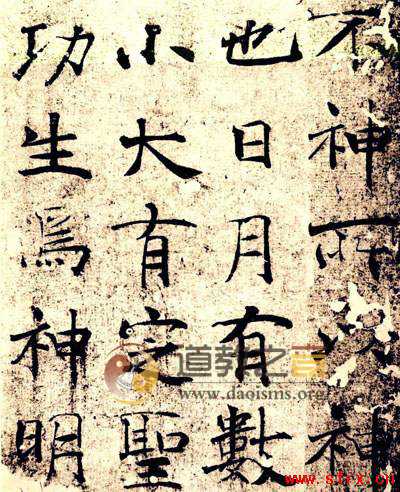 不神所以神
也日月有數
小大有定聖
功生焉神明
道教之音
www.daoisms.org
www.sfzx.cn